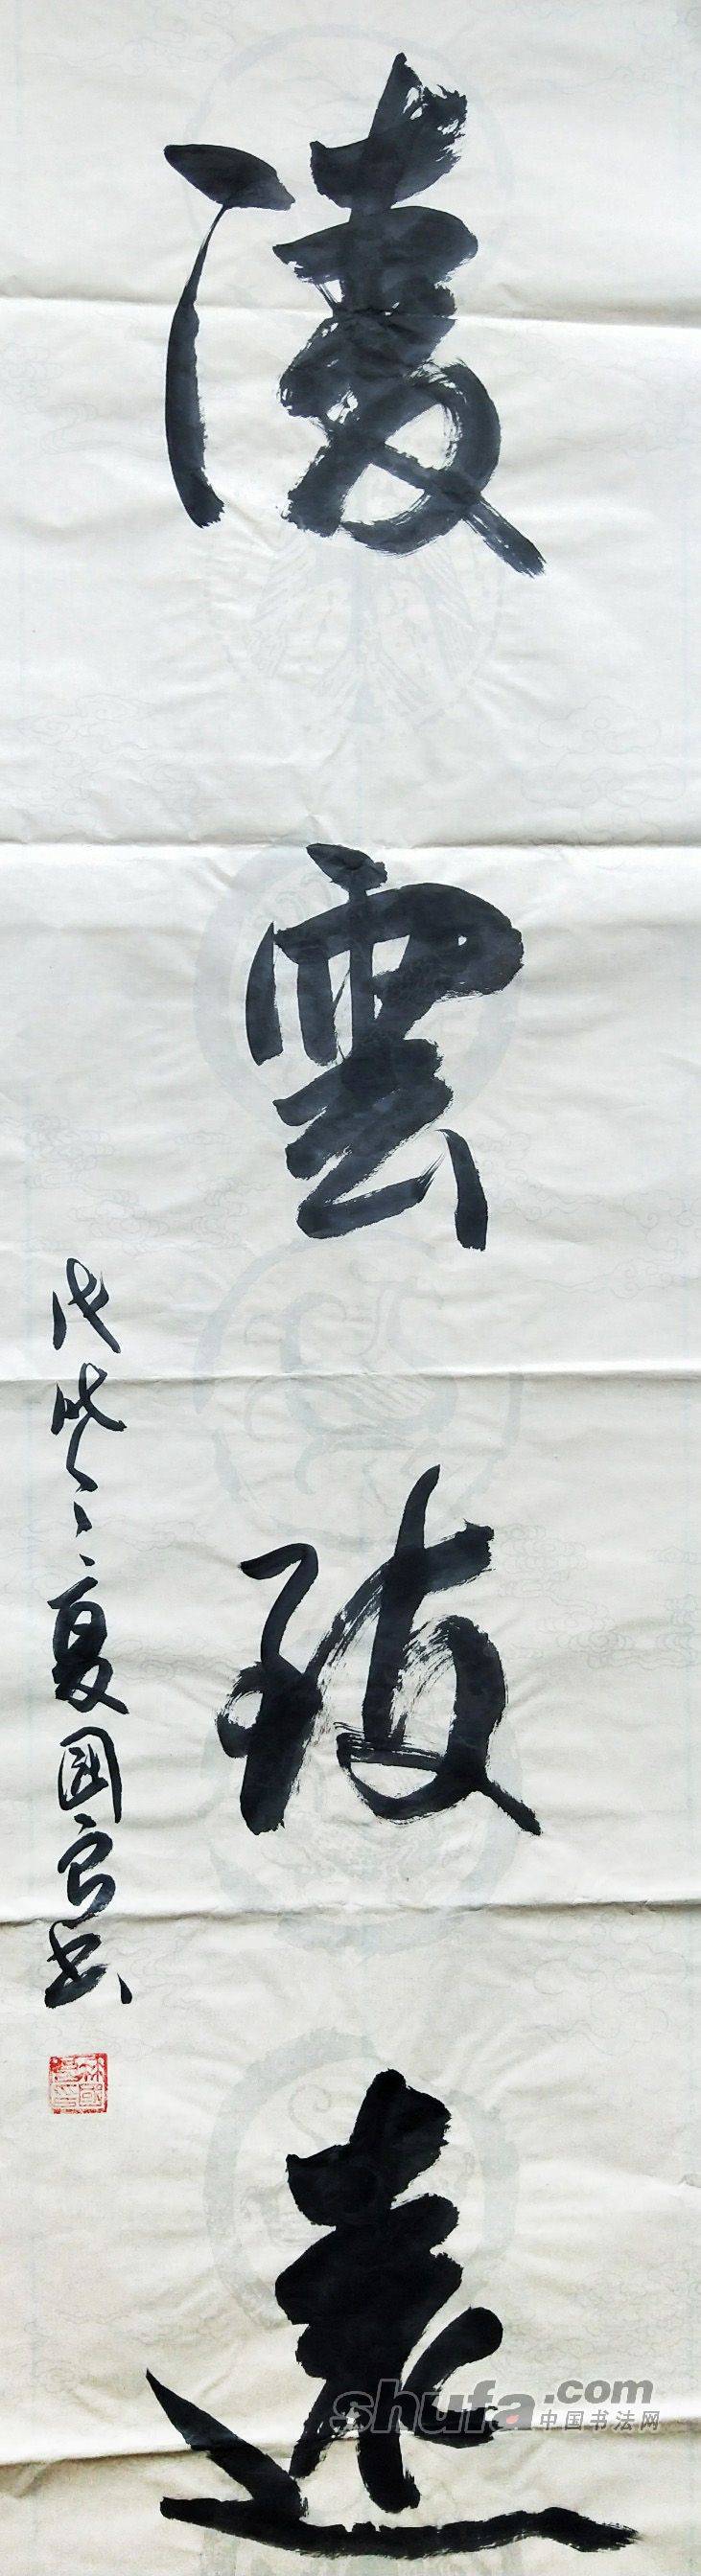 凌雲致遠
戊戌之夏國良书
shufa.com
中国书法网